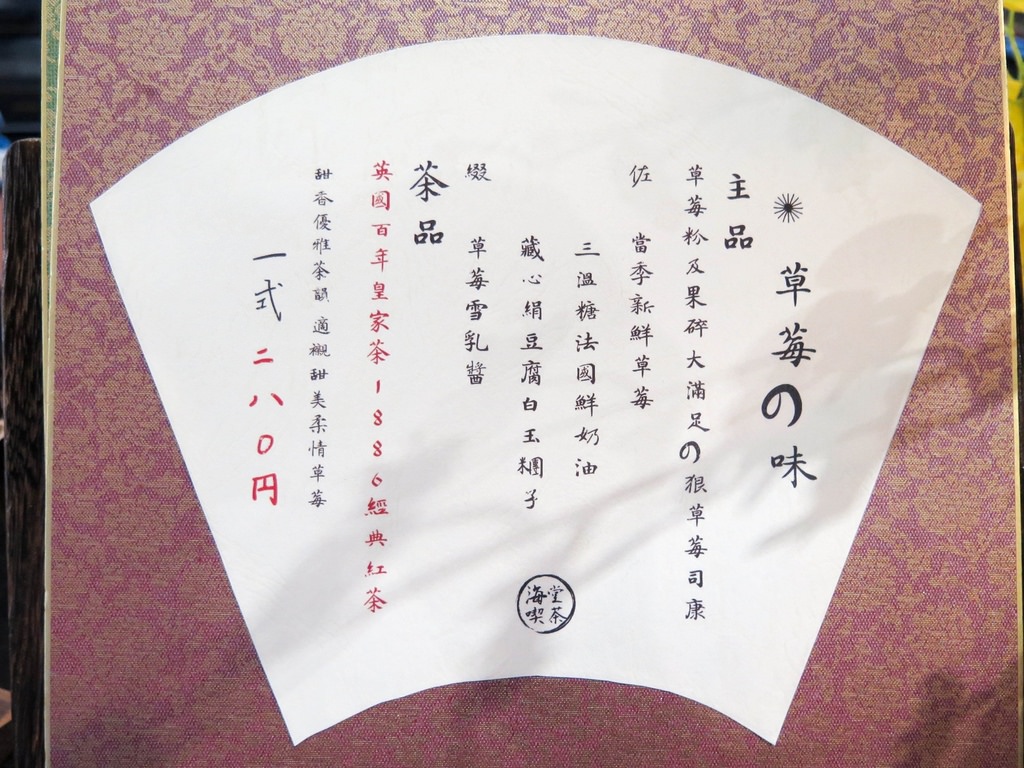 草莓の味
主品
草莓粉及果碎大滿足の狠草莓司康
佐 當季新鮮草莓
三溫糖法國鮮奶油
藏心絹豆腐白玉糰子
綴 草莓雪乳醬
茶品
英國百年皇家茶1886經典紅茶
甜香優雅茶韻 適襯甜美柔情草莓
一式 二八０円
堂茶
海喫